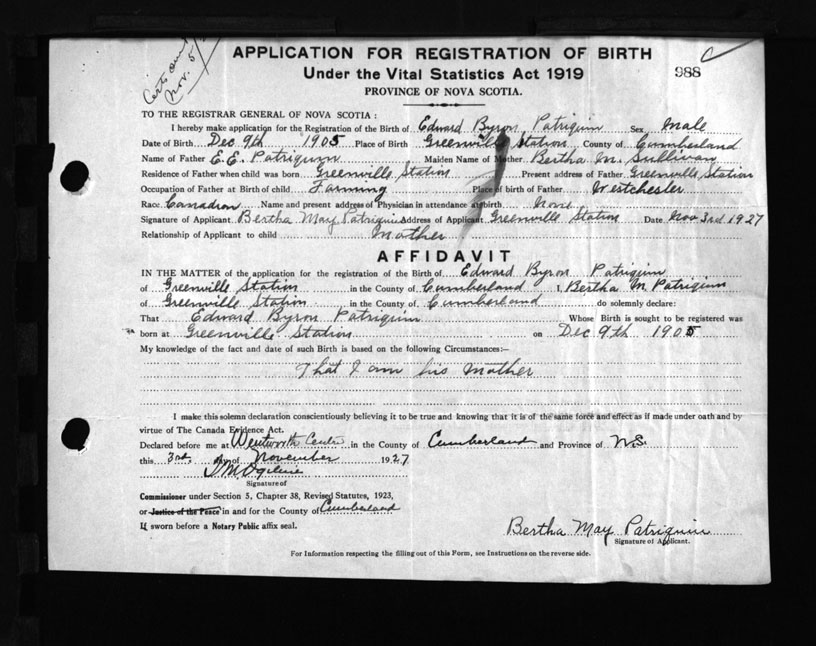 Certs owing
Nov. 5/
APPLICATION FOR REGISTRATION OF BIRTH
Under the Vital Statistics Act 1919
988
PROVINCE OF NOVA SCOTIA.
TO THE REGISTRAR GENERAL OF NOVA SCOTIA :
I hereby make application for the Registration of the Birth of Edward Byron Patriquin Sex Male
Date of Birth Dec 9th 1905 Place of Birth Greenville Station County of Cumberland
Name of Father E.E. Patriquin Maiden Name of Mother Bertha M. Sullivan
Residence of Father when child was born Greenville Station Present address of Father Greenville Station
Occupation of Father at Birth of child Farming Place of birth of Father Westchester
Race Canadian Name and present address of Physician in attendance at birth None
Signature of Applicant Bertha May Patriquin Address of Applicant Greenville Station Date Nov 3rd 1927
Relationship of Applicant to child Mother
AFFIDAVIT
IN THE MATTER of the application for the registration of the Birth of Edward Byron Patriquin
of Greenville Station in the County of Cumberland I, Bertha M Patriquin
of Greenville Station in the County of Cumberland do solemnly declare:
That Edward Byron Patriquin Whose Birth is sought to be registered was
born at Greenville Station on Dec 9th 1905
My knowledge of the fact and date of such Birth is based on the following Circumstances:—
That I am his Mother
I make this solemn declaration conscientiously believing it to be true and knowing that it is of the same force and effect as if made under oath and by
virtue of The Canada Evidence Act.
Declared before me at Wentworth Centre in the County of Cumberland and Province of N.S.
this 3rd. day of November 1927
Ogilvie
Signature of
Commissioner under Section 5, Chapter 38, Revised Statutes, 1923,
or Justice of the Peace in and for the County of Cumberland
If sworn before a Notary Public affix seal.
Bertha May Patriquin
Signature of Applicant.
For Information respecting the filling out of this Form, see Instructions on the reverse side.